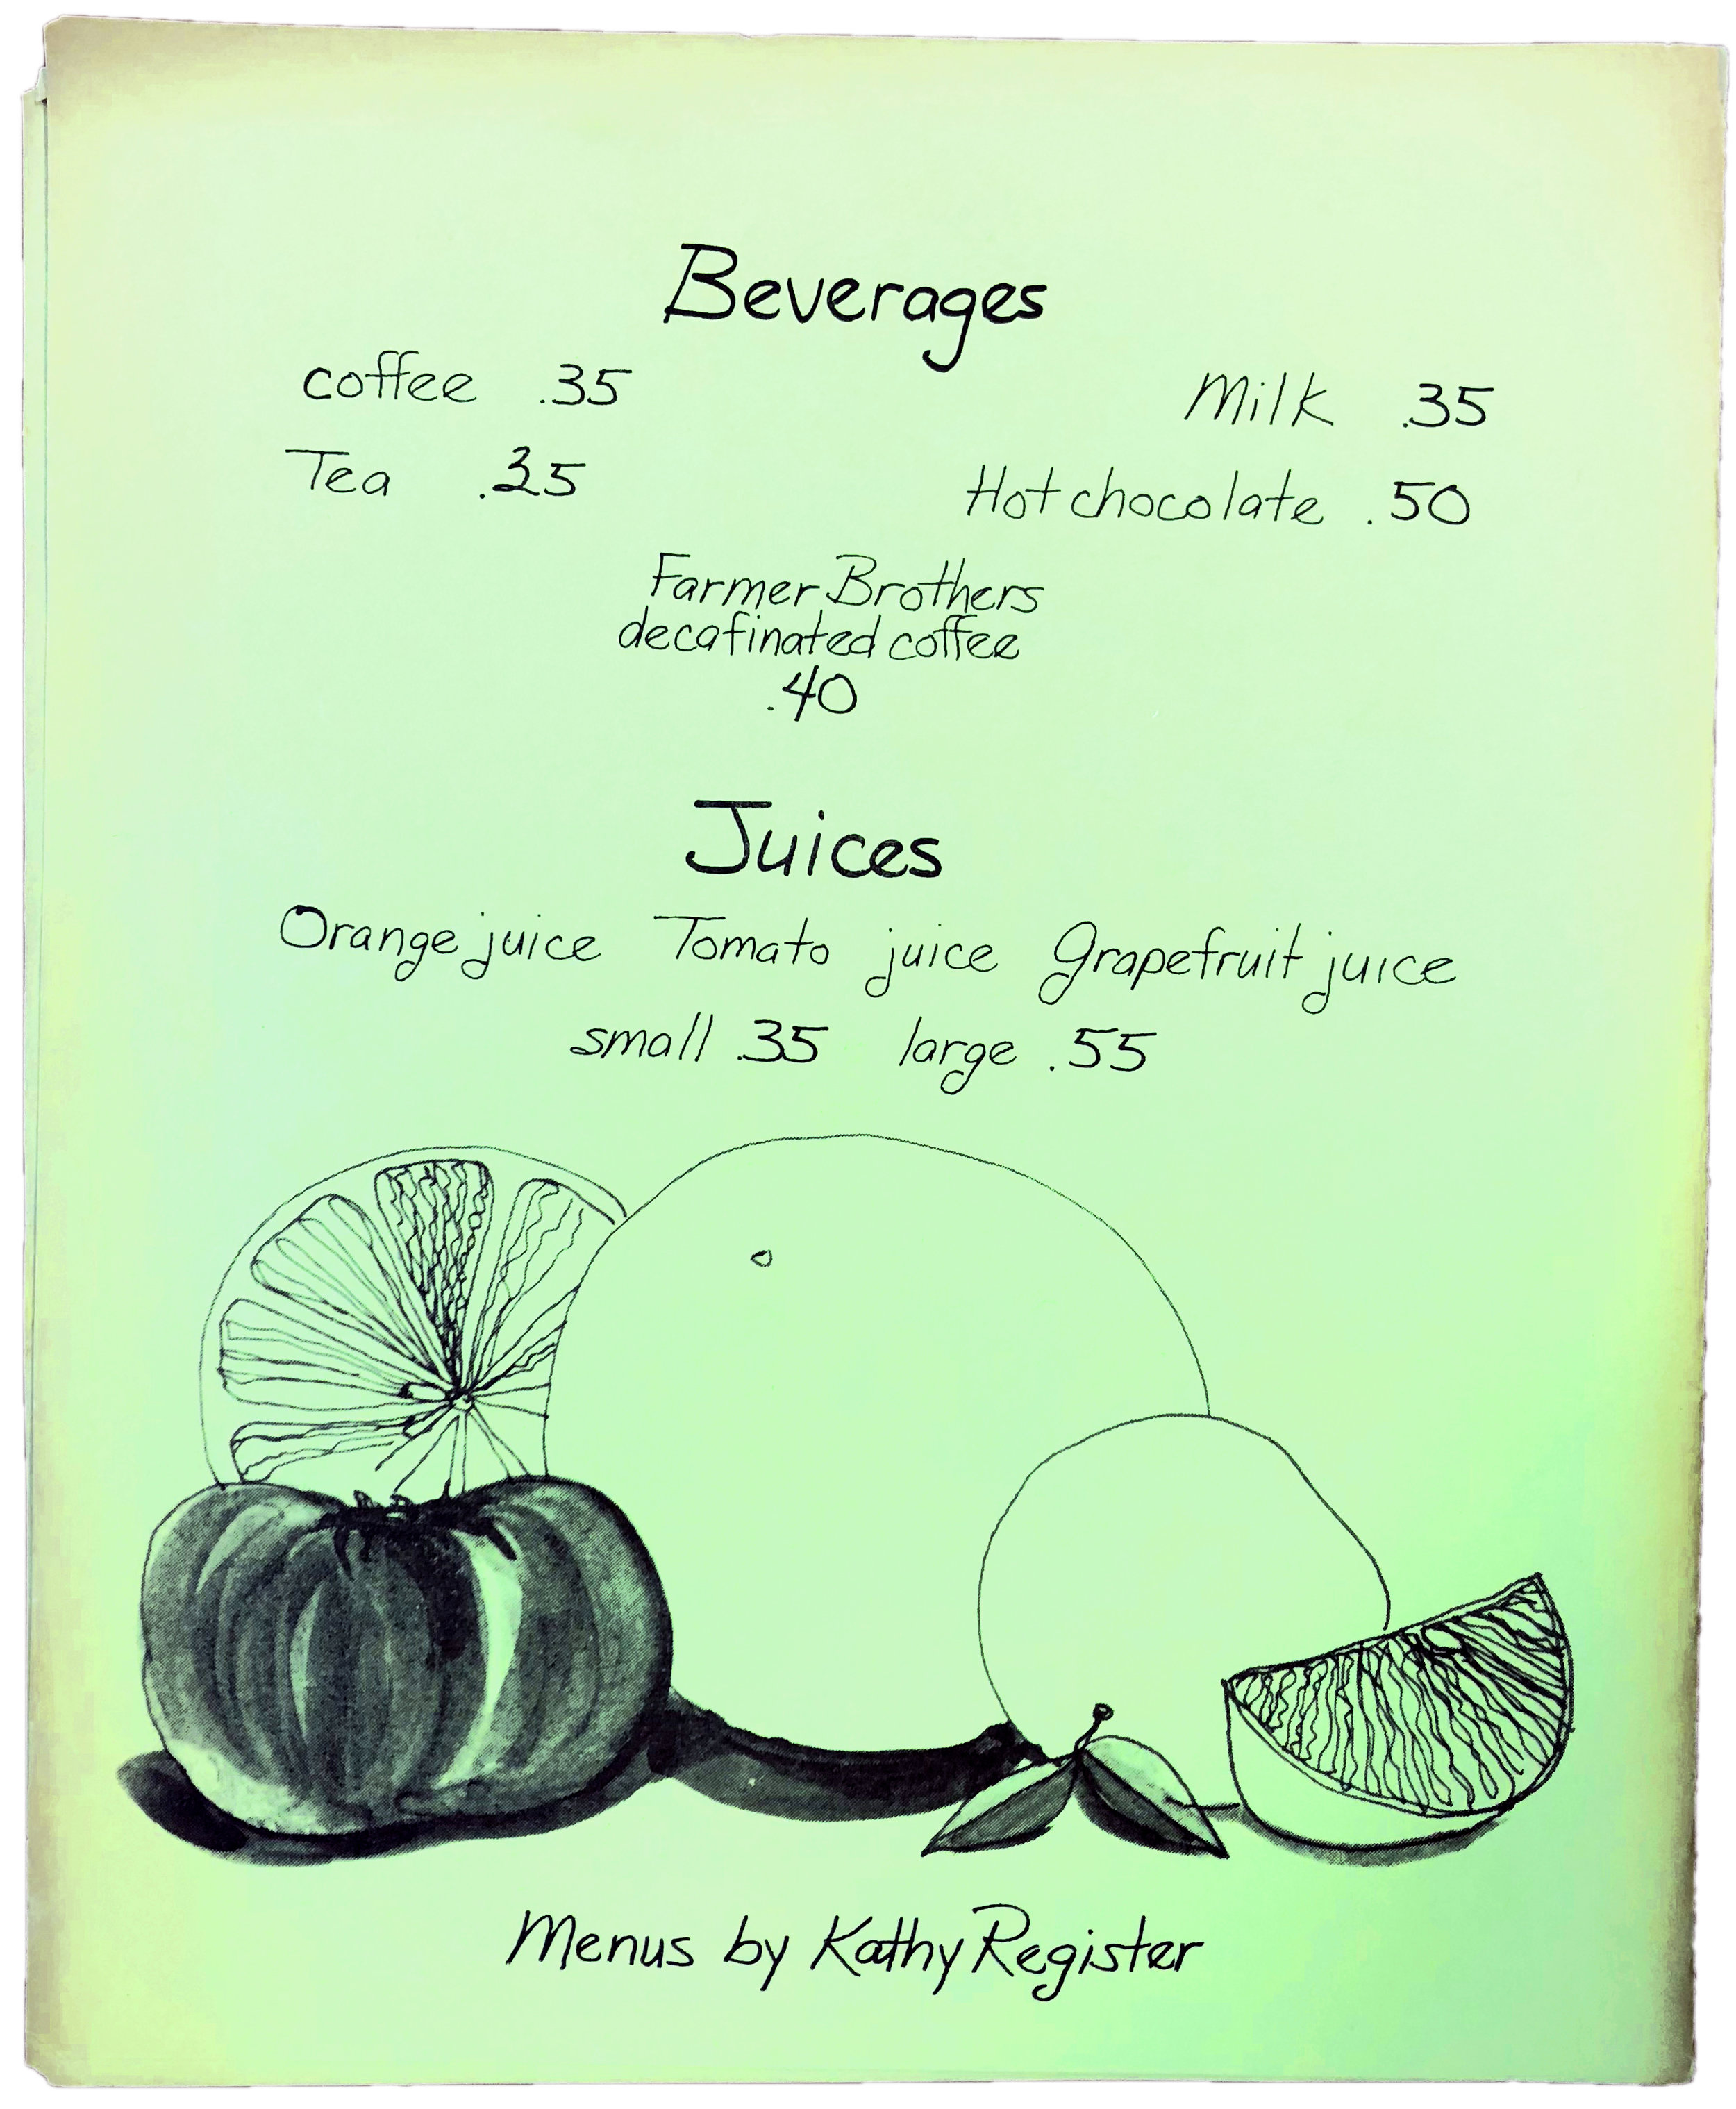 Beverages
coffee .35 Milk .35
Tea Hot chocolate .50
Farmer Brothers
decafinated coffee
.40
Juices
Orange juice Tomato juice Grapefruit juice
small .35 large .55
Menus by Kathy Register